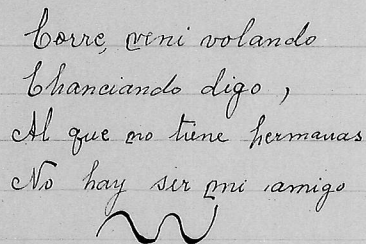 Corre, veni volando
Chanciando digo,
Al que no tiene hermanas
No hay ser mi amigo